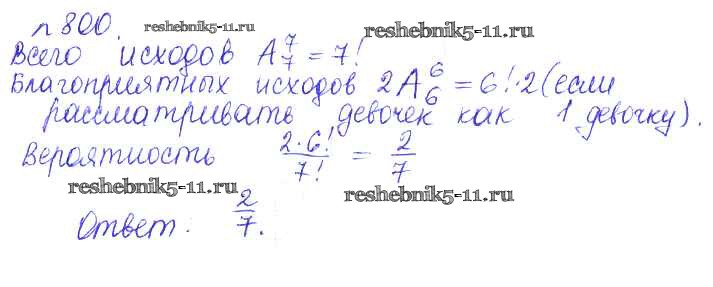 п 800. reshebnik5-11.ru
Всего исходов A₇⁷ = 7! reshebnik5-11.ru
Благоприятных исходов 2A₆⁶ = 6!·2 (если
рассматривать девочек как 1 девочку).
Вероятность 2·6!/7! = 2/7
reshebnik5-11.ru reshebnik5-11.ru
Ответ: 2/7.